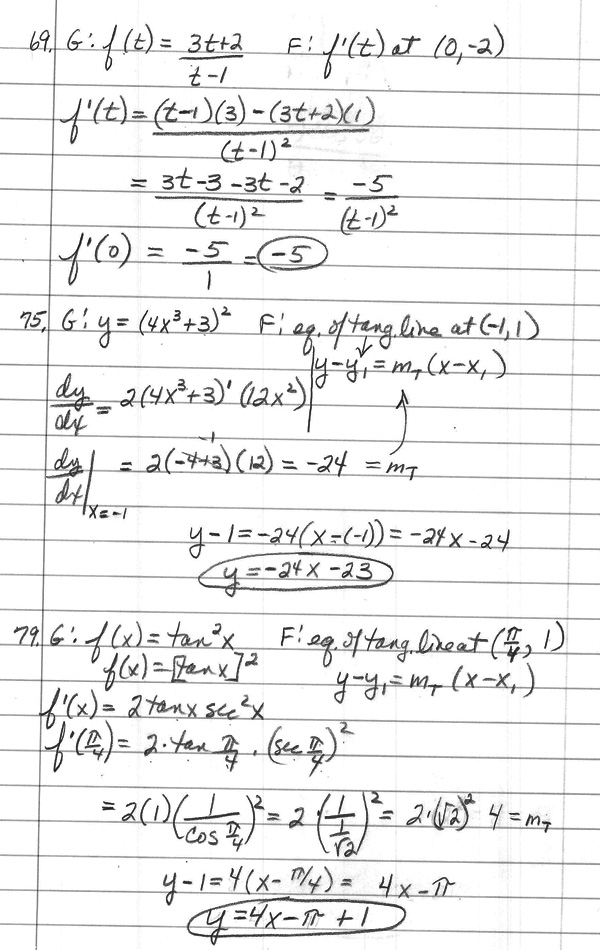 69. G: f(t) = (3t+2)/(t-1) F: f'(t) at (0,-2)
f'(t) = ((t-1)(3) - (3t+2)(1))/(t-1)²
= (3t-3-3t-2)/(t-1)² = -5/(t-1)²
f'(0) = -5/1 = -5
75. G: y = (4x³+3)² F: eq. of tang. line at (-1,1)
y-y₁ = m_T (x-x₁)
dy/dx = 2(4x³+3)¹ (12x²)
-1
dy/dx |x=-1 = 2(-4+3)(12) = -24 = m_T
y-1 = -24(x-(-1)) = -24x-24
y = -24x-23
79. G: f(x) = tan²x F: eq. of tang. line at (π/4, 1)
f(x) = [tanx]² y-y₁ = m_T (x-x₁)
f'(x) = 2tanx sec²x
f'(π/4) = 2·tan π/4 · (sec π/4)²
= 2(1)(1/(cos π/4))² = 2·(1/(1/√2))² = 2·(√2)² 4 = m_T
y-1 = 4(x-π/4) = 4x-π
y = 4x-π+1